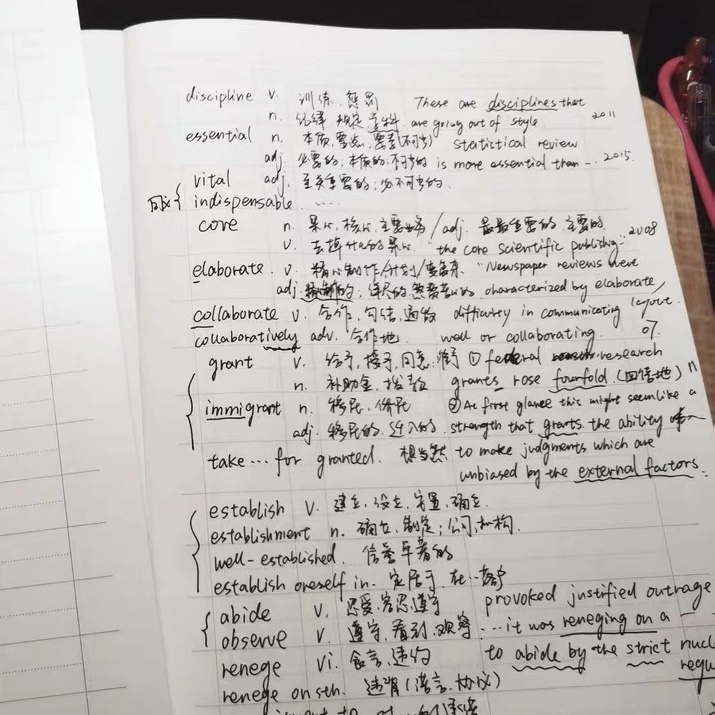 discipline v. 训练, 惩罚 These are disciplines that
n. 纪律 规定 学科 are going out of style 2011
essential n. 本质, 要点, 需要(不可少) statistical review
adj. 必要的, 本质的, 不可少的 is more essential than... 2015.
vital adj. 至关重要的; 必不可少的.
同义 { indispensable .....
core n. 果心, 核心, 主要 /adj. 最重要的, 主要的
v. 去掉 的果心 "the core scientific publishing.. 2008
elaborate. v. 精心制作/计划/ "Newspaper reviews were
adj. 详尽的 characterized by elaborate
collaborate v. 合作, 勾结, 通敌 difficulty in communicating layout.
collaboratively adv. 合作地 well or collaborating. 07.
grant v. 给予, 授予, 同意, 准予 ① federal research
n. 补助金, 拨款 grants rose fourfold (四倍地) n
immigrant n. 移民, 侨民 ② At first glance this might seem like a
adj. 移民的, 迁入的. strength that grants the ability
take … for granted. 想当然 to make judgments which are
unbiased by the external factors.
establish v. 建立, 设立, 安置, 确立.
establishment n. 确立, 制定; 公司, 机构.
well-established. 信誉卓著的
establish oneself in. 定居于, 在…
abide v. 忍受, 容忍, 遵守 provoked justified outrage
observe v. 遵守, 看到, 观察 ...it was reneging on a
renege vi. 食言, 违约 to abide by the strict nucl
renege on sth. 违背(诺言, 协议) requ